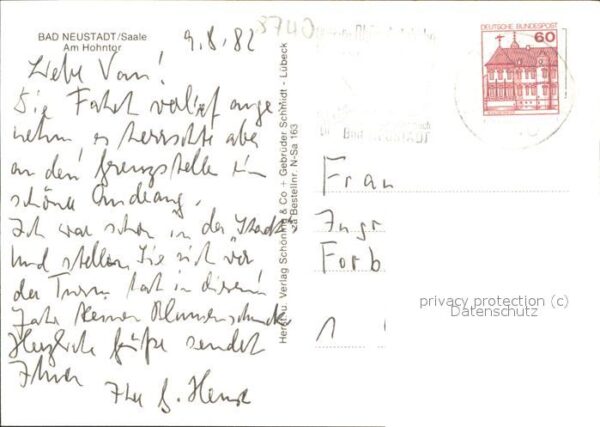 BAD NEUSTADT/Saale
Am Hohntor
9.8.82
3740
Liebe
Die Fahrt verlief ange
nehm, es herrschte aber
an den Grenzstellen ein
schöner Andrang.
Ich war schon in der "Stadt"
und stellen Sie sich vor
der Turm hat in diesem
Jahr keinen Blumenschmuck
Herzliche Grüße sendet
Ihnen
Ihr
Herst. u. Verlag Schöning & Co + Gebrüder Schmidt - Lübeck
Bestellnr. N-Sa 163
DEUTSCHE BUNDESPOST
60
Frau
Ingr
Forb
1
privacy protection (c)
Datenschutz